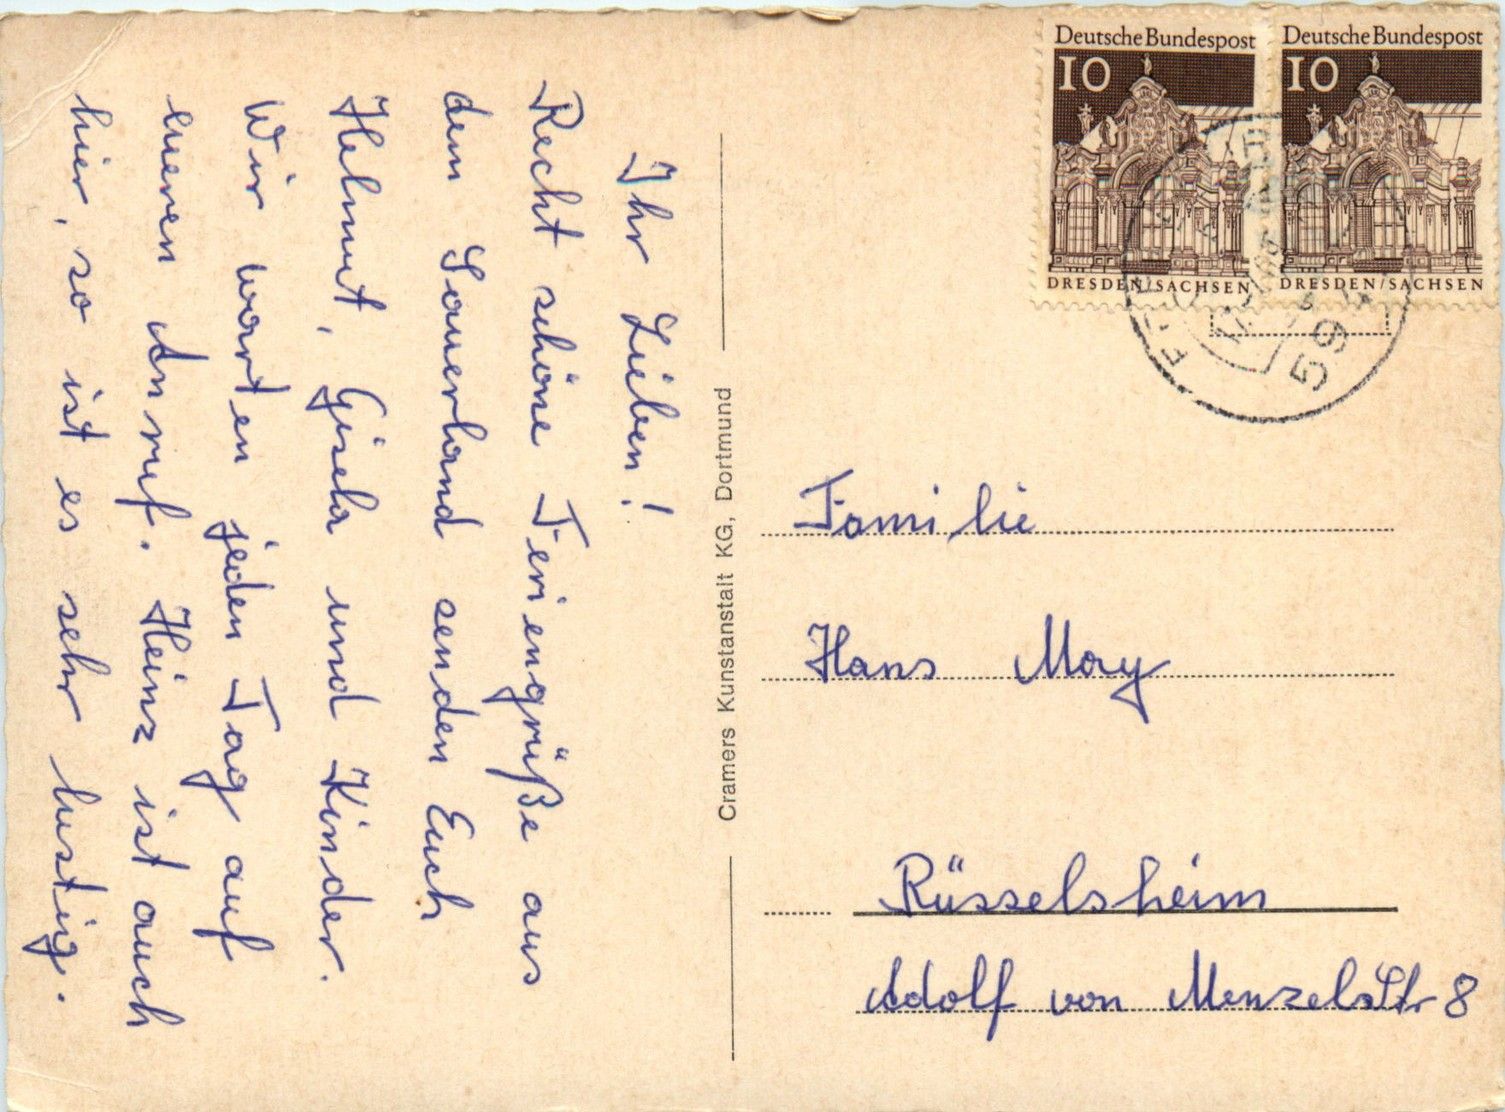 Ihr Lieben!
Recht schöne Feriengrüße aus
dem Sauerland senden Euch
Helmut, Gisela und Kinder.
Wir warten jeden Tag auf
eueren Anruf. Heinz ist auch
hier, so ist es sehr lustig.
Cramers Kunstanstalt KG, Dortmund
Deutsche Bundespost
10
DRESDEN/SACHSEN
Deutsche Bundespost
10
DRESDEN/SACHSEN
59
Familie
Hans May
Rüsselsheim
Adolf von Menzelstr 8